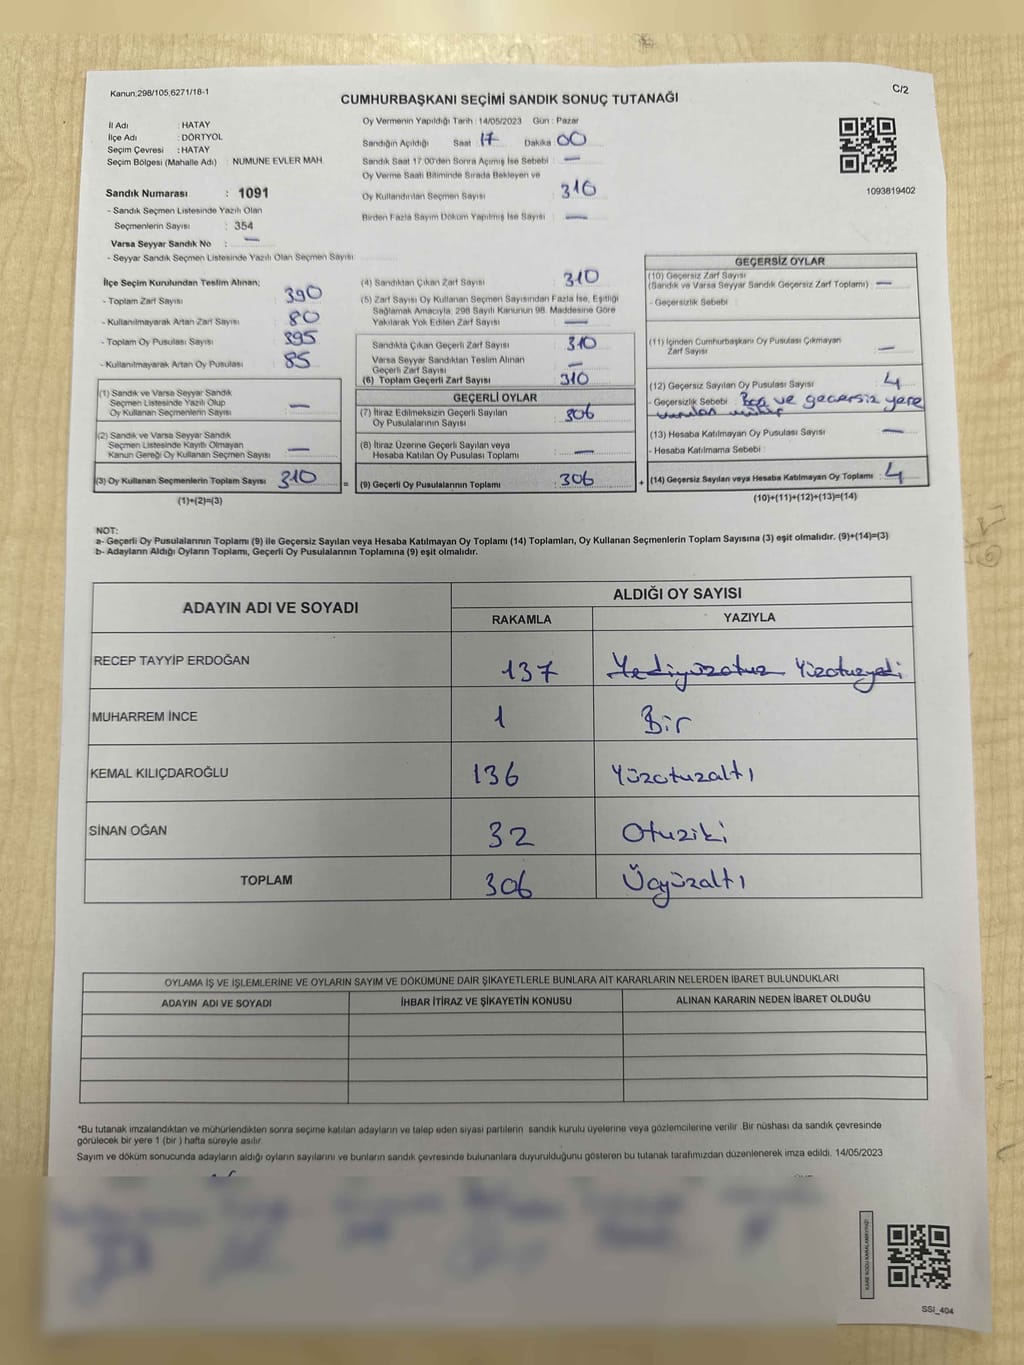 Kanun,298/105,6271/18-1
C/2
CUMHURBAŞKANI SEÇİMİ SANDIK SONUÇ TUTANAĞI
İl Adı : HATAY
İlçe Adı : DÖRTYOL
Seçim Çevresi : HATAY
Seçim Bölgesi (Mahalle Adı) : NUMUNE EVLER MAH.
Sandık Numarası : 1091
- Sandık Seçmen Listesinde Yazılı Olan
Seçmenlerin Sayısı : 354
Varsa Seyyar Sandık No : —
- Seyyar Sandık Seçmen Listesinde Yazılı Olan Seçmen Sayısı :
Oy Vermenin Yapıldığı Tarih : 14/05/2023 Gün : Pazar
Sandığın Açıldığı Saat 17 Dakika 00
Sandık Saat 17.00'den Sonra Açılmış İse Sebebi : —
Oy Verme Saati Bitiminde Sırada Bekleyen ve
Oy Kullandırılan Seçmen Sayısı : 310
Birden Fazla Sayım Döküm Yapılmış İse Sayısı : —
1093819402
İlçe Seçim Kurulundan Teslim Alınan;
- Toplam Zarf Sayısı : 390
- Kullanılmayarak Artan Zarf Sayısı : 80
- Toplam Oy Pusulası Sayısı : 395
- Kullanılmayarak Artan Oy Pusulası : 85
(1) Sandık ve Varsa Seyyar Sandık
Seçmen Listesinde Yazılı Olup
Oy Kullanan Seçmenlerin Sayısı : —
(2) Sandık ve Varsa Seyyar Sandık
Seçmen Listesinde Kayıtlı Olmayan
Kanun Gereği Oy Kullanan Seçmen Sayısı : —
(3) Oy Kullanan Seçmenlerin Toplam Sayısı : 310 =
(1)+(2)=(3)
(4) Sandıktan Çıkan Zarf Sayısı : 310
(5) Zarf Sayısı Oy Kullanan Seçmen Sayısından Fazla İse, Eşitliği
Sağlamak Amacıyla, 298 Sayılı Kanunun 98. Maddesine Göre
Yakılarak Yok Edilen Zarf Sayısı : —
Sandıkta Çıkan Geçerli Zarf Sayısı : 310
Varsa Seyyar Sandıktan Teslim Alınan
Geçerli Zarf Sayısı : —
(6) Toplam Geçerli Zarf Sayısı : 310
GEÇERLİ OYLAR
(7) İtiraz Edilmeksizin Geçerli Sayılan
Oy Pusulalarının Sayısı : 306
(8) İtiraz Üzerine Geçerli Sayılan veya
Hesaba Katılan Oy Pusulası Toplamı : —
(9) Geçerli Oy Pusulalarının Toplamı : 306 +
GEÇERSİZ OYLAR
(10) Geçersiz Zarf Sayısı
(Sandık ve Varsa Seyyar Sandık Geçersiz Zarf Toplamı) : —
- Geçersizlik Sebebi :
(11) İçinden Cumhurbaşkanı Oy Pusulası Çıkmayan
Zarf Sayısı : —
(12) Geçersiz Sayılan Oy Pusulası Sayısı : 4
- Geçersizlik Sebebi : Boş ve geçersiz yere
vurulan mühür
(13) Hesaba Katılmayan Oy Pusulası Sayısı : —
- Hesaba Katılmama Sebebi :
(14) Geçersiz Sayılan veya Hesaba Katılmayan Oy Toplamı : 4
(10)+(11)+(12)+(13)=(14)
NOT:
a- Geçerli Oy Pusulalarının Toplamı (9) ile Geçersiz Sayılan veya Hesaba Katılmayan Oy Toplamı (14) Toplamları, Oy Kullanan Seçmenlerin Toplam Sayısına (3) eşit olmalıdır. (9)+(14)=(3)
b- Adayların Aldığı Oyların Toplamı, Geçerli Oy Pusulalarının Toplamına (9) eşit olmalıdır.
ADAYIN ADI VE SOYADI ALDIĞI OY SAYISI
RAKAMLA YAZIYLA
RECEP TAYYİP ERDOĞAN 137 Yediyüzotuz Yüzotuzyedi
MUHARREM İNCE 1 Bir
KEMAL KILIÇDAROĞLU 136 Yüzotuzaltı
SİNAN OĞAN 32 Otuziki
TOPLAM 306 Üçyüzaltı
OYLAMA İŞ VE İŞLEMLERİNE VE OYLARIN SAYIM VE DÖKÜMÜNE DAİR ŞİKAYETLERLE BUNLARA AİT KARARLARIN NELERDEN İBARET BULUNDUKLARI
ADAYIN ADI VE SOYADI İHBAR İTİRAZ VE ŞİKAYETİN KONUSU ALINAN KARARIN NEDEN İBARET OLDUĞU
*Bu tutanak imzalandıktan ve mühürlendikten sonra seçime katılan adayların ve talep eden siyasi partilerin sandık kurulu üyelerine veya gözlemcilerine verilir. Bir nüshası da sandık çevresinde
görülecek bir yere 1 (bir ) hafta süreyle asılır.
Sayım ve döküm sonucunda adayların aldığı oyların sayılarını ve bunların sandık çevresinde bulunanlara duyurulduğunu gösteren bu tutanak tarafımızdan düzenlenerek imza edildi. 14/05/2023
KARE KODU KARALAMAYINIZ!
SSİ_404